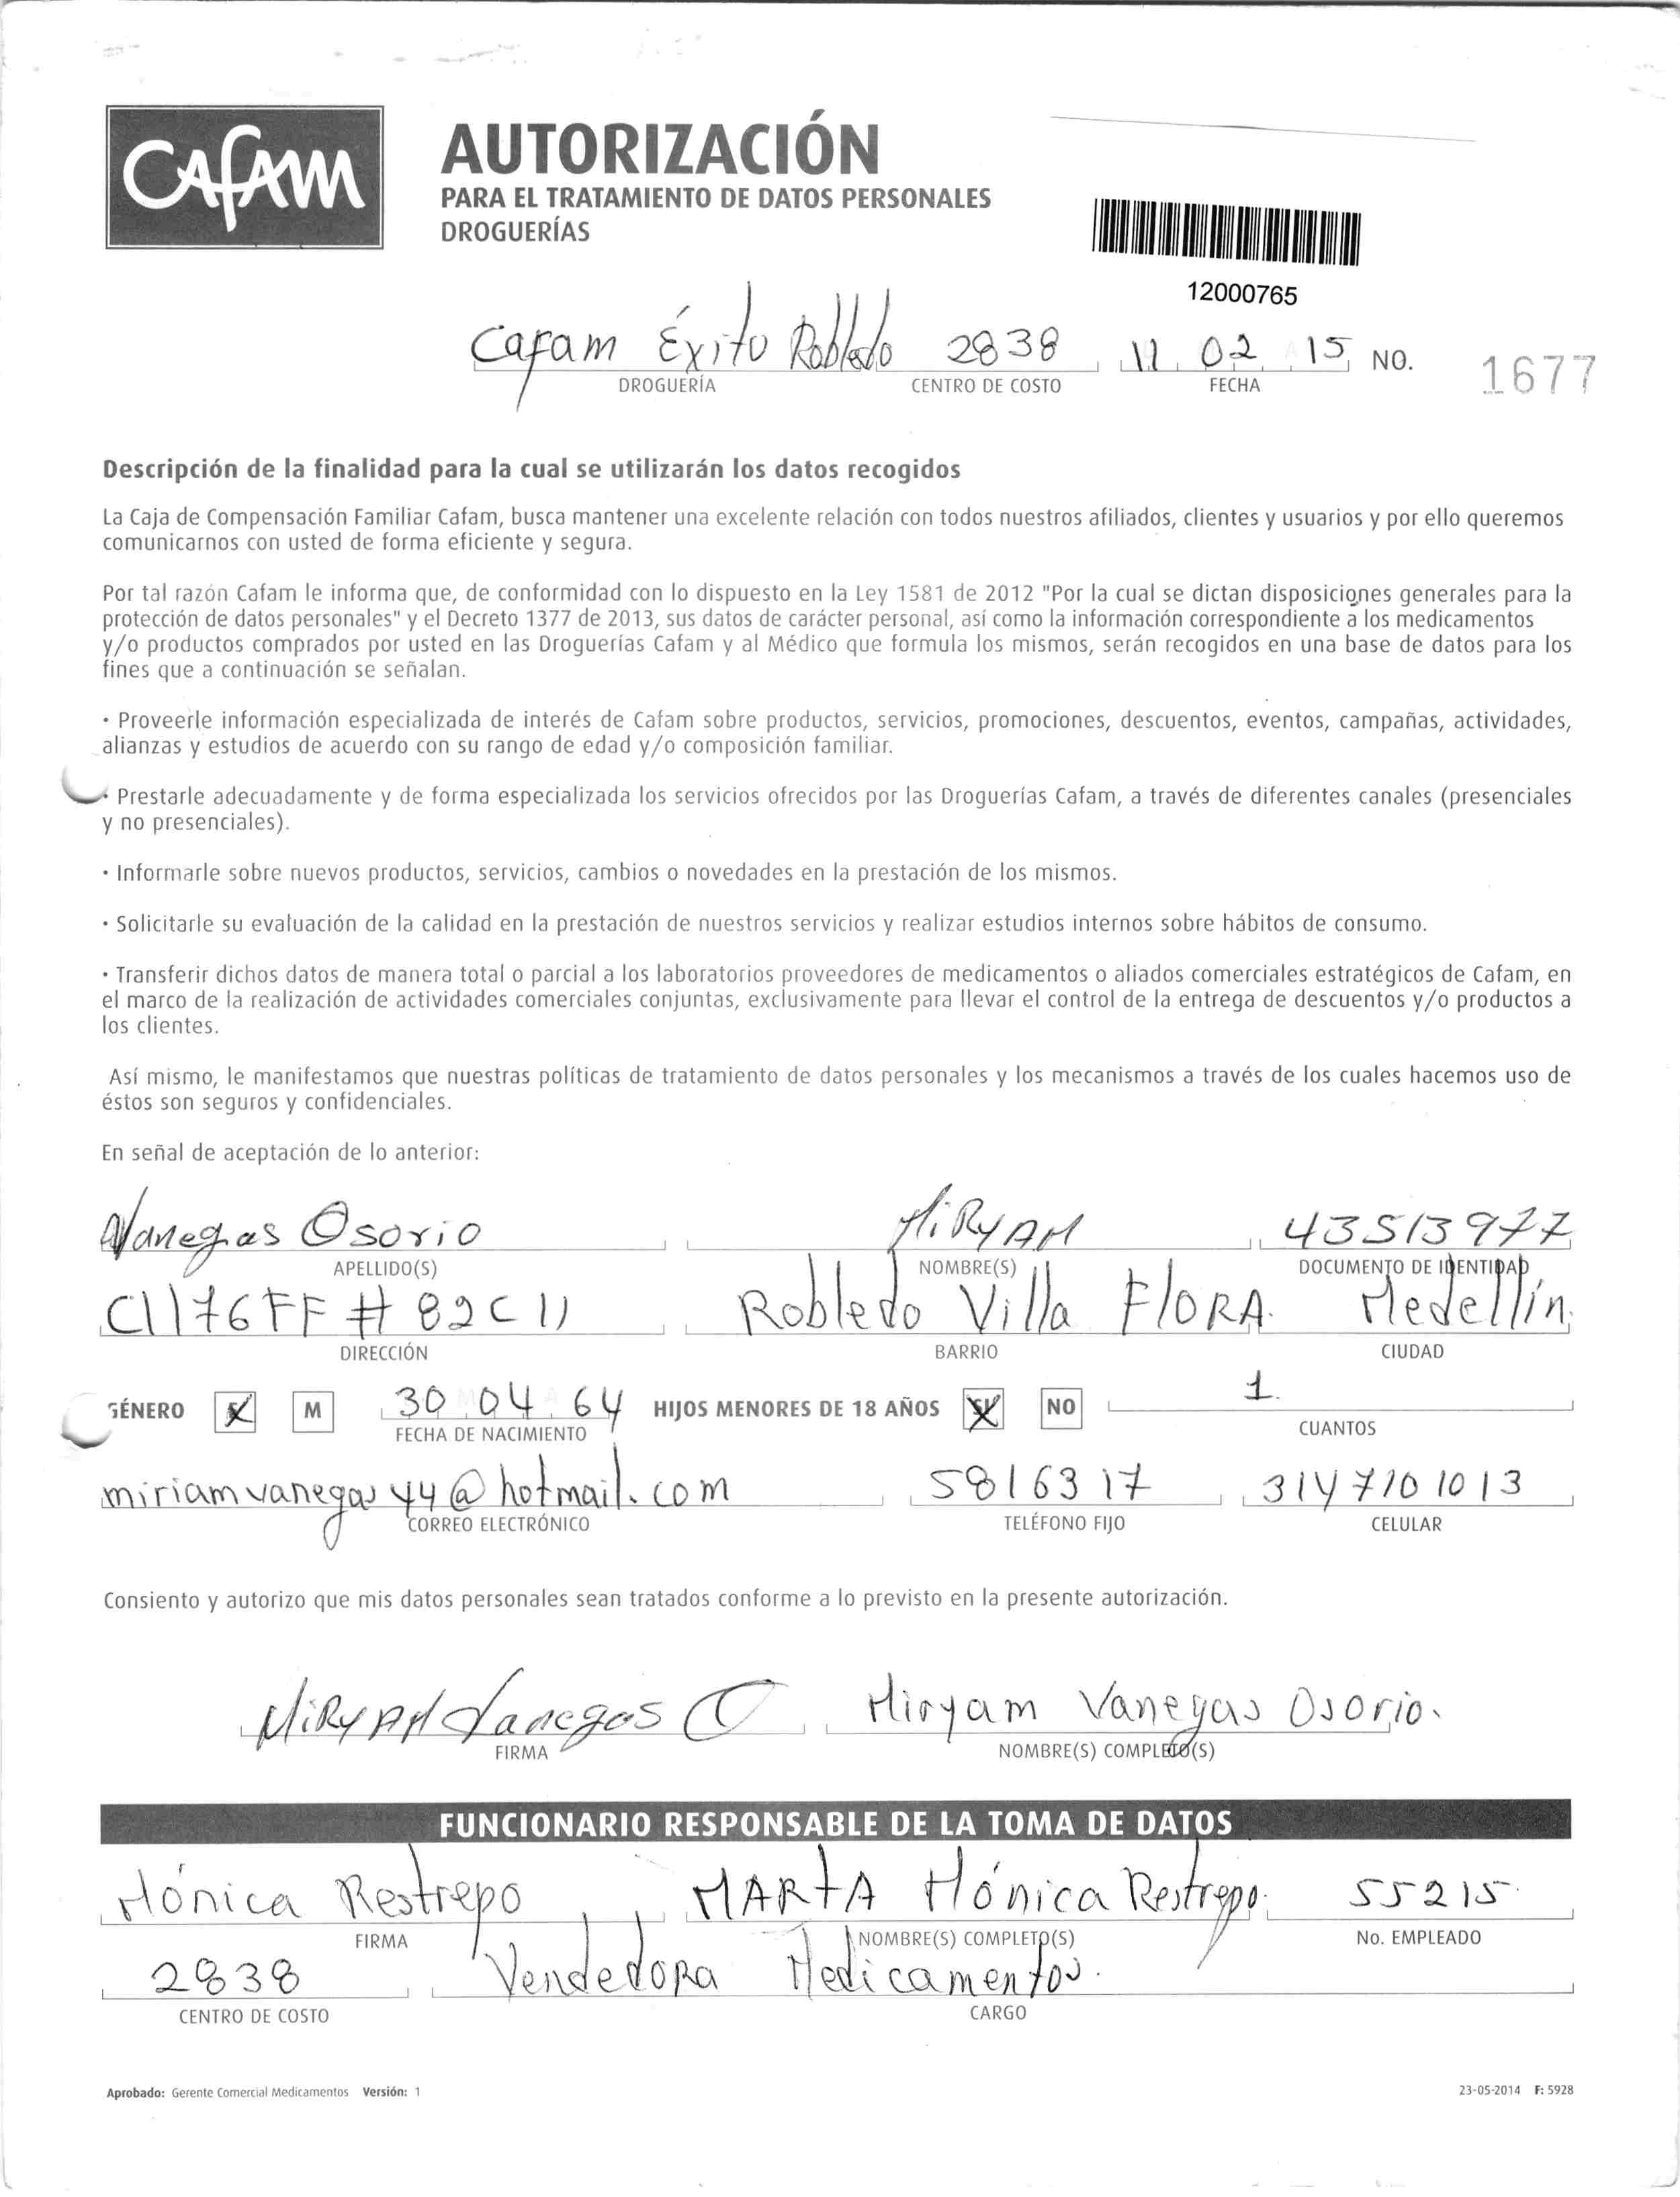 Cafam
AUTORIZACIÓN
PARA EL TRATAMIENTO DE DATOS PERSONALES
DROGUERÍAS
12000765
Cafam Éxito Robledo 2838 11 02 15 NO. 1677
DROGUERÍA CENTRO DE COSTO FECHA
Descripción de la finalidad para la cual se utilizarán los datos recogidos
La Caja de Compensación Familiar Cafam, busca mantener una excelente relación con todos nuestros afiliados, clientes y usuarios y por ello queremos
comunicarnos con usted de forma eficiente y segura.
Por tal razón Cafam le informa que, de conformidad con lo dispuesto en la Ley 1581 de 2012 "Por la cual se dictan disposiciones generales para la
protección de datos personales" y el Decreto 1377 de 2013, sus datos de carácter personal, así como la información correspondiente a los medicamentos
y/o productos comprados por usted en las Droguerías Cafam y al Médico que formula los mismos, serán recogidos en una base de datos para los
fines que a continuación se señalan.
· Proveerle información especializada de interés de Cafam sobre productos, servicios, promociones, descuentos, eventos, campañas, actividades,
alianzas y estudios de acuerdo con su rango de edad y/o composición familiar.
· Prestarle adecuadamente y de forma especializada los servicios ofrecidos por las Droguerías Cafam, a través de diferentes canales (presenciales
y no presenciales).
· Informarle sobre nuevos productos, servicios, cambios o novedades en la prestación de los mismos.
· Solicitarle su evaluación de la calidad en la prestación de nuestros servicios y realizar estudios internos sobre hábitos de consumo.
· Transferir dichos datos de manera total o parcial a los laboratorios proveedores de medicamentos o aliados comerciales estratégicos de Cafam, en
el marco de la realización de actividades comerciales conjuntas, exclusivamente para llevar el control de la entrega de descuentos y/o productos a
los clientes.
Así mismo, le manifestamos que nuestras políticas de tratamiento de datos personales y los mecanismos a través de los cuales hacemos uso de
éstos son seguros y confidenciales.
En señal de aceptación de lo anterior:
Vanegas Osorio MiRyAM 43513977
APELLIDO(S) NOMBRE(S) DOCUMENTO DE IDENTIDAD
Cll 76FF # 82C11 Robledo Villa FlORA. Medellín.
DIRECCIÓN BARRIO CIUDAD
GÉNERO M 30 04 64 HIJOS MENORES DE 18 AÑOS NO 1.
FECHA DE NACIMIENTO CUANTOS
miriamvanegas44@hotmail.com 5816317 3147101013
CORREO ELECTRÓNICO TELÉFONO FIJO CELULAR
Consiento y autorizo que mis datos personales sean tratados conforme a lo previsto en la presente autorización.
MiRyAM Vanegas O Miryam Vanegas Osorio.
FIRMA NOMBRE(S) COMPLETO(S)
FUNCIONARIO RESPONSABLE DE LA TOMA DE DATOS
Mónica Restrepo MARtA Mónica Restrepo. 55215
FIRMA NOMBRE(S) COMPLETO(S) No. EMPLEADO
2838 Vendedora Medicamentos.
CENTRO DE COSTO CARGO
Aprobado: Gerente Comercial Medicamentos Versión: 1 23-05-2014 F: 5928